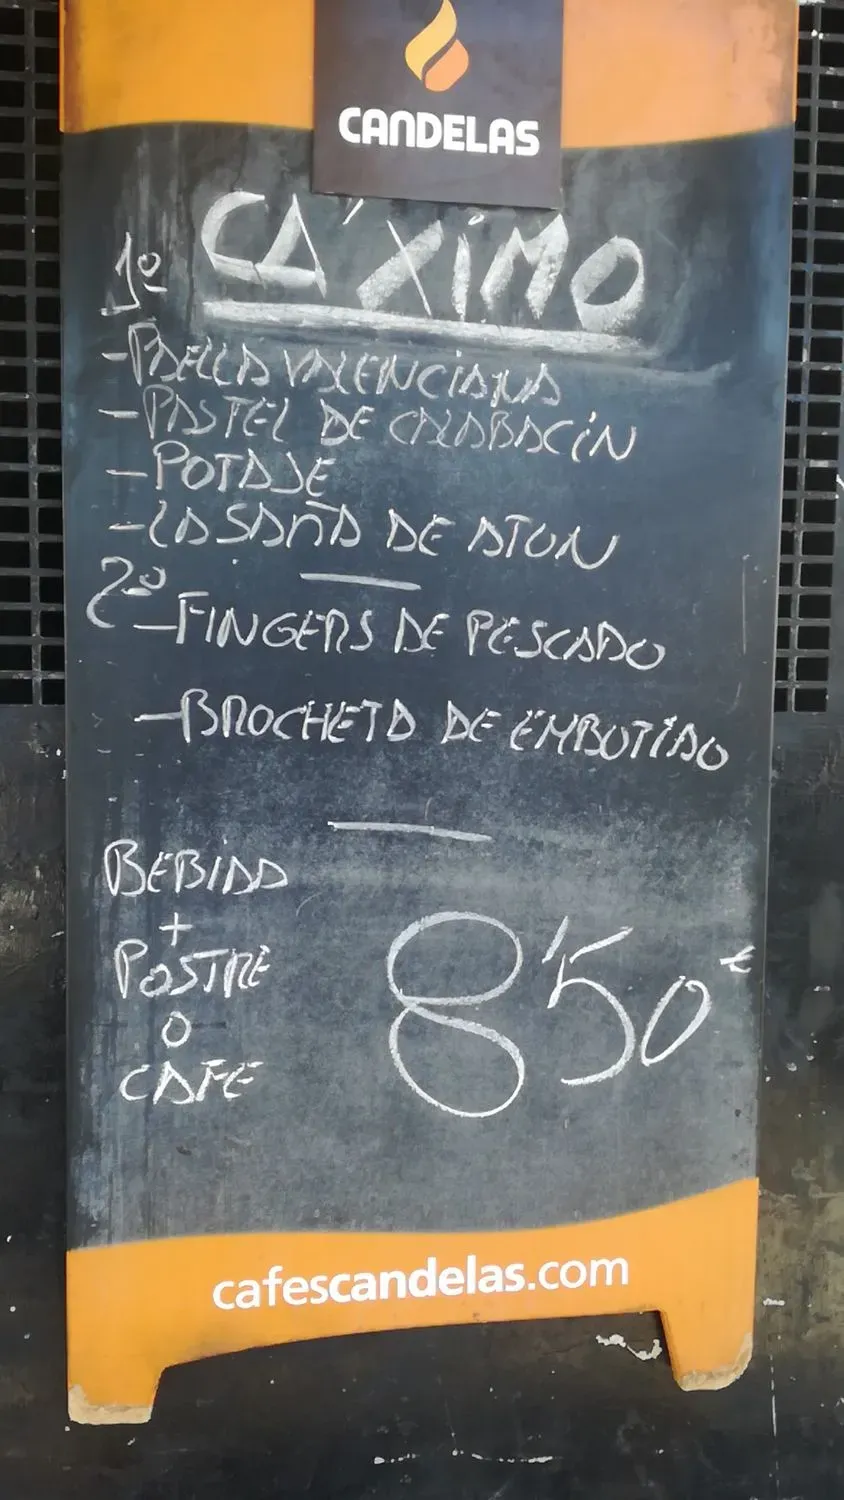 CANDELAS
CA'XiMO
1º
-PAELLA VALENCiANA
-PASTEL DE CALABACiN
-POTAJE
-LASAÑA DE ATUN
2º
-FINGERS DE PESCADO
-BROCHETA DE EMBUTiDO
BEBiDA
+
POSTRE
O
CAFE
8'50€
cafescandelas.com